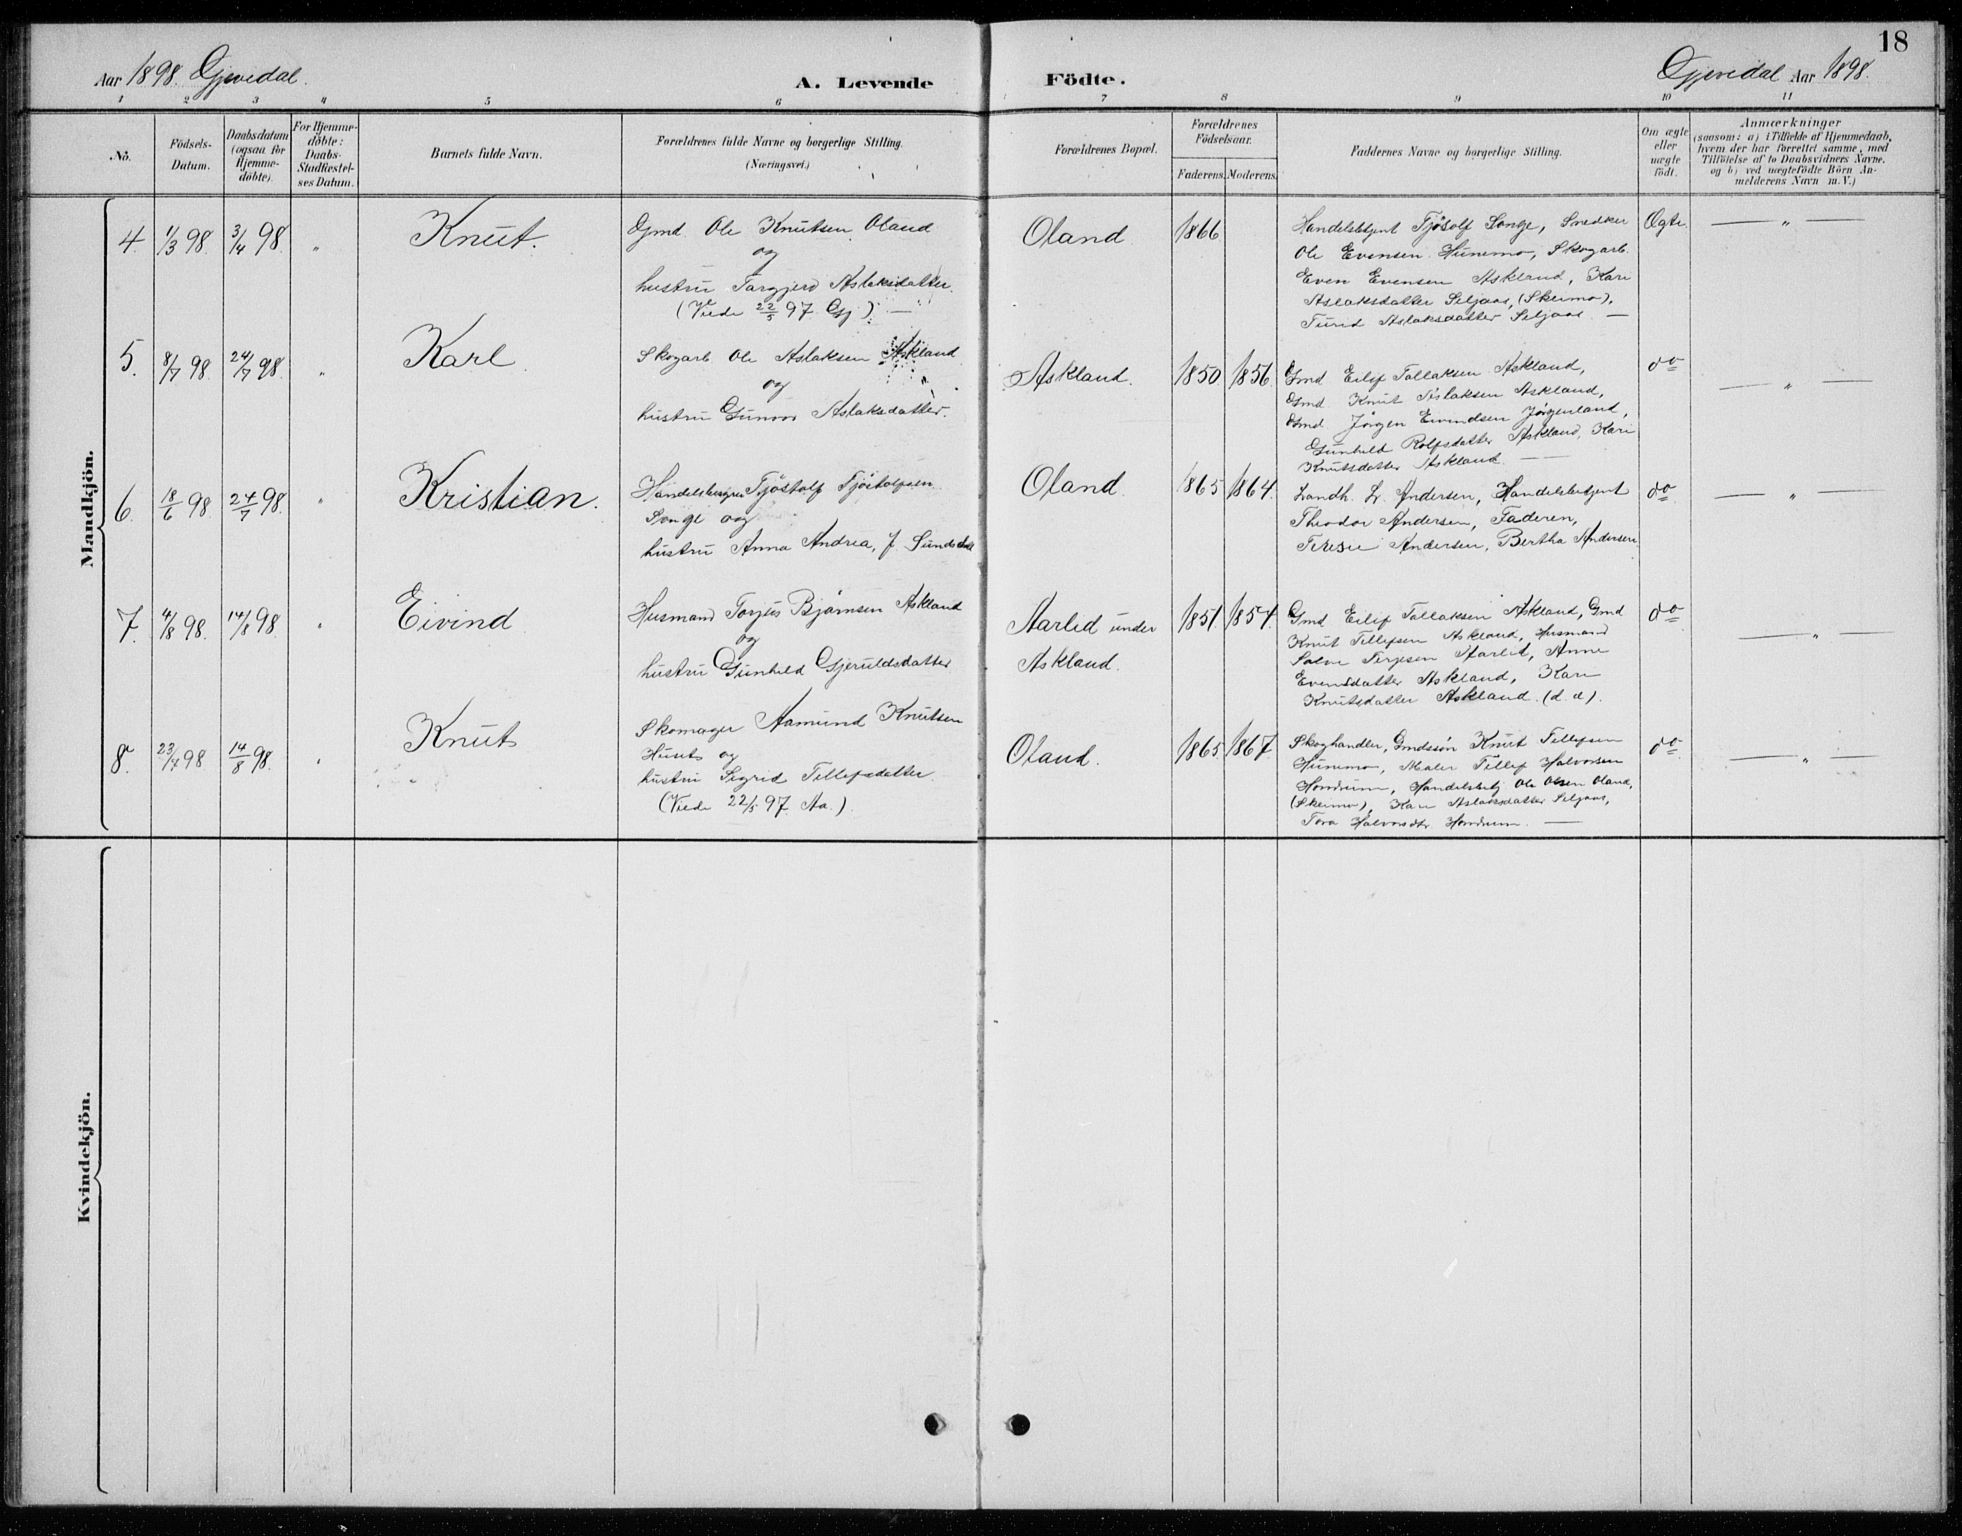 18
Aar 1898. Gjevedal.
A. Levende
Födte.
Gjevedal Aar 1898.
1 2 3 4 5 6 7 8 9 10 11
No.
Födsels-Datum.
Daabsdatum (ogsaa for Hjemme-döbte).
For Hjemme-döbte: Daabs-Stadfæstel-ses Datum.
Barnets fulde Navn.
Forældrenes fulde Navne og borgerlige Stilling.
(Næringsvei.)
Forældrenes Bopæl.
Forældrenes Födselsaar.
Faderens. Moderens.
Faddernes Navne og borgerlige Stilling.
Om ægte eller uægte födt.
Anmærkninger
(saasom: a) i Tilfælde af Hjemmedaab,
hvem der har forrettet samme, med
Tilföielse af to Daabsvidners Navne.
og b) ved uægtefödte Börn An-
melderens Navn m. V.)
Mandkjön.
4. 1/3 98 3/4 98 " Knut.
Gmd. Ole Knutsen Oland
og
hustru Torgjerd Aslaksdatter.
(Viede 22/5 97 Gj.) —
Oland 1866
Handelsbetjent Tjöstolf Songe, Snedker
Ole Evensen Hunemo, Skogarb.
Even Evensen Askland, Kari
Aslaksdatter Seljaas, (Skeimo),
Turid Aslaksdatter Seljaas. —
Ægte — " —
5. 8/7 98 24/7 98. " Karl
Skogarb Ole Aslaksen Askland
og
hustru Gunvor Aslaksdatter.
Askland. 1850 1856
Gmd Eilif Tallaksen Askland,
Gmd Knut Aslaksen Askland,
Gmd Jörgen Eivindsen Jörgenland,
Gunhild Rolfsdatter Askland, Kari
Knutsdatter Askland. —
do — " —
6. 18/6 98 24/7 98. " Kristian.
Tjöstolf Tjöstolfsen
Songe og
hustru Anna Andrea, f.
Oland. 1865 1864.
Landh. L. Andersen, Handelsbetjent
Theodor Andersen, Faderen,
Andersen, Bertha Andersen
do — " —
7. 4/8 98. 14/8 98 " Eivind
Husmand Torjus Björnsen Askland
og
hustru Gunhild Gjeruldsdatter
Aarlid under
Askland.
1851. 1857.
Gmd Eilif Tallaksen Askland, Gmd
Knut Tellefsen Askland, Husmand
Salve Terjesen Aarlid, Anne
Evensdatter Askland, Kari
Knutsdatter Askland. (d. a).
do — " —
8. 23/7 98 14/8 98. " Knut
Skomager Aamund Knutsen
og
hustru Sigrid Tellefsdatter
(Viede 22/5 97 Aa.).
Oland. 1865 1867
Skoghandler, Gmdssön Knut Tellefsen
Hunemo, Maler Tellef Halvorsen
Handelsbetj Ole Olsen Oland,
(Skeimo), Kari Aslaksdatter Seljaas,
Tora Halvorsdtr —
do — " —
Kvindekjön.